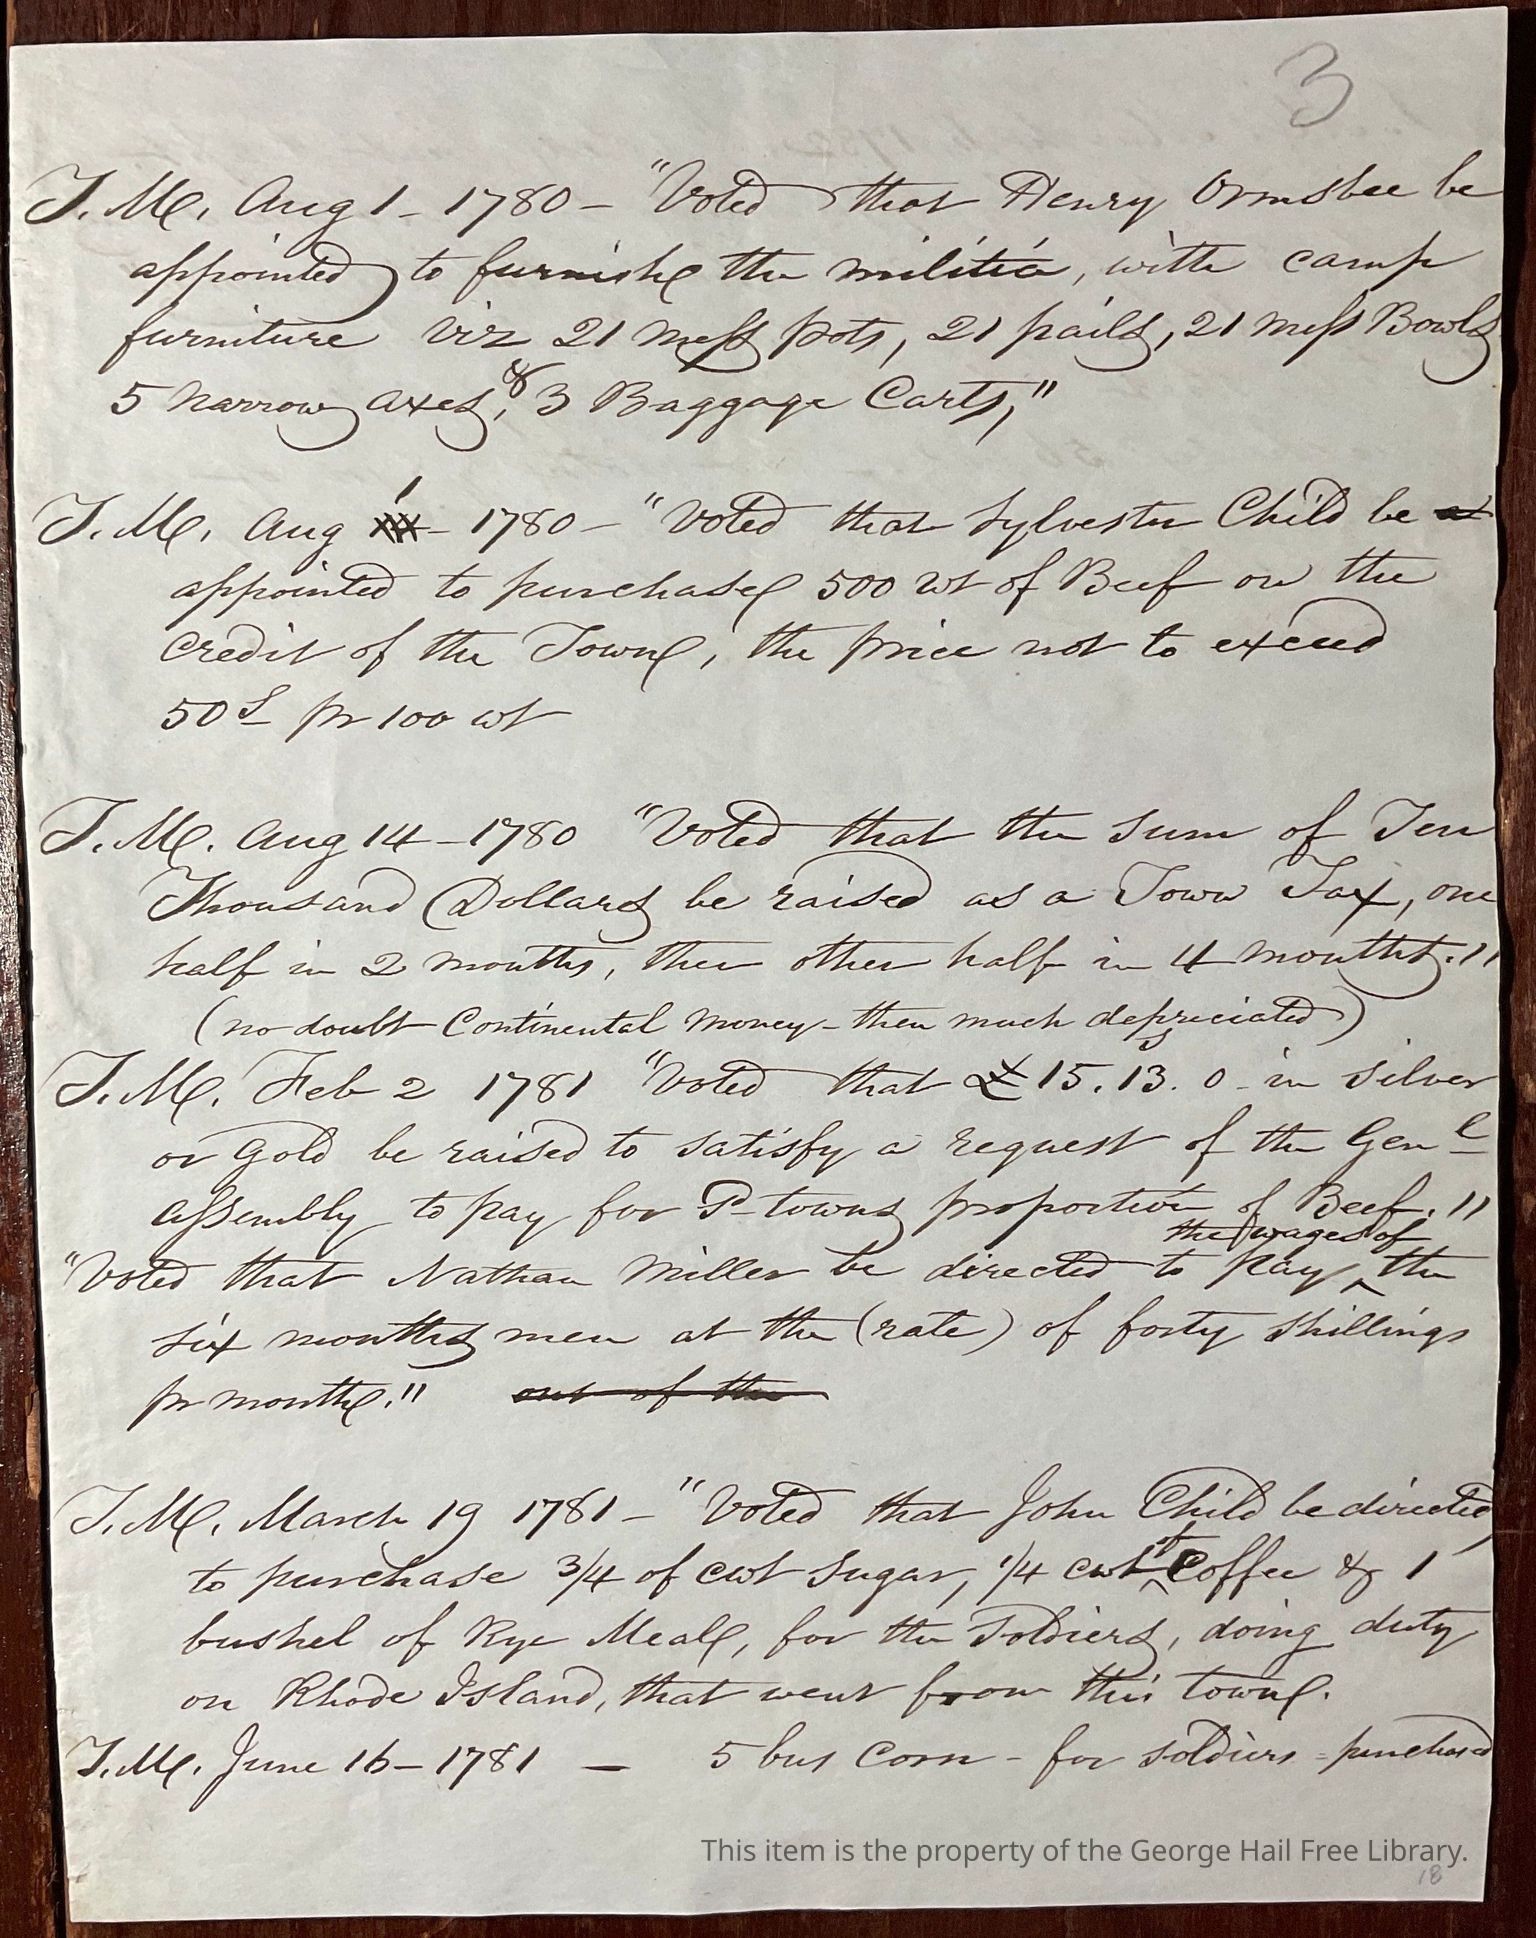 3
T. M. Aug 1 - 1780 - "Voted that Henry Ormsbee be
appointed to furnish the militia, with camp
furniture viz 21 mess pots, 21 pails, 21 mess Bowls
5 narrow axes, & 3 Baggage Carts,"
T. M. Aug 1 - 1780 - "Voted that Sylvester Child be
appointed to purchase 500 wt of Beef on the
credit of the Town, the price not to exceed
50S pr 100 wt
T. M. Aug 14 - 1780 "Voted that the sum of Ten
Thousand Dollars be raised as a Town Tax, one
half in 2 months, the other half in 4 months."
(no doubt Continental money - then much depreciated)
T. M. Feb 2 1781 "Voted that £15. 13. 0 - in silver
or gold be raised to satisfy a request of the Genl
assembly to pay for P-towns proportion of Beef."
"Voted that Nathan Miller be directed to pay the wages of the
six months men at the (rate) of forty shillings
pr month." out of the
T. M. March 19 1781 - "Voted that John Child be directed
to purchase 3/4 of cwt sugar, 1/4 cwt of Coffee & 1
bushel of Rye Meal, for the Soldiers, doing duty
on Rhode Island, that went from this town.
T. M. June 16 - 1781 - 5 bus Corn - for soldiers - purchased
This item is the property of the George Hail Free Library.
18